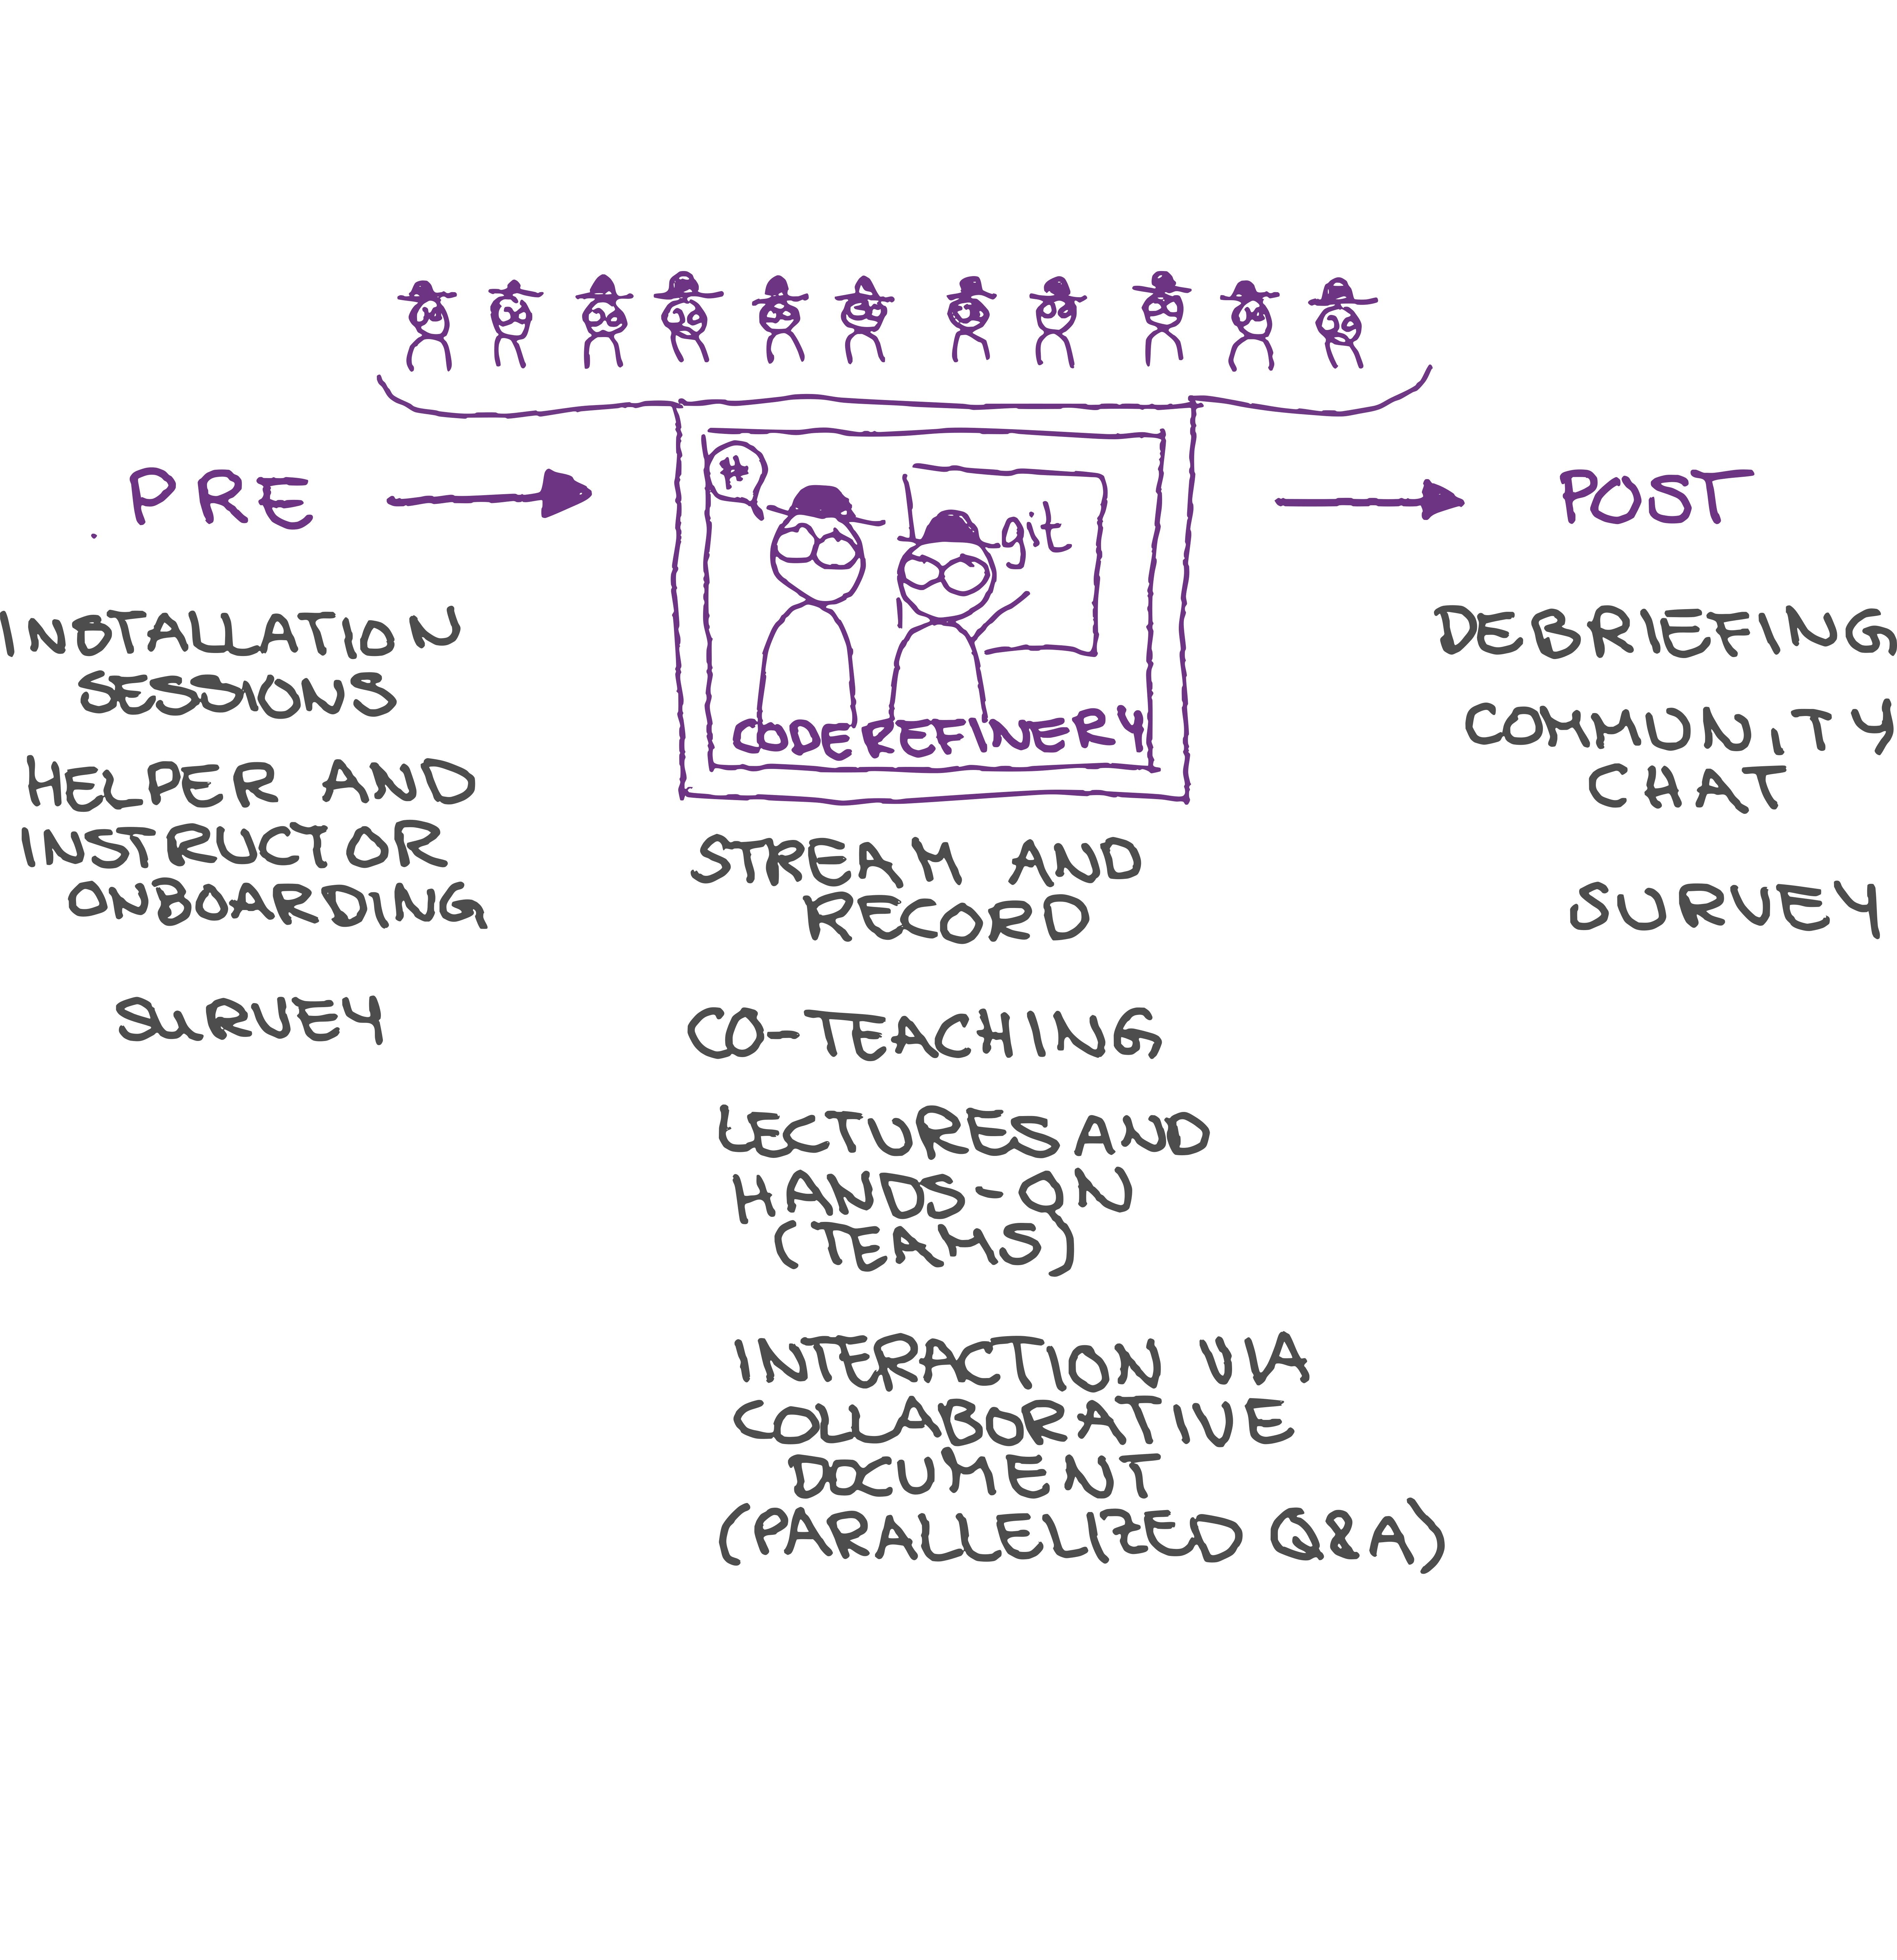 *
git
CODE REFINERY
PRE
INSTALLATION
SESSIONS
HELPER AND
INSTRUCTOR
ONBOARDING
SURVEY
STREAM AND
RECORD
CO-TEACHING
LECTURES AND
HANDS-ON
(TEAMS)
INTERACTION VIA
COLLABORATIVE
DOCUMENT
(PARALLELIZED Q&A)
POST
DEBRIEFING
COMMUNITY
CHAT
SURVEY